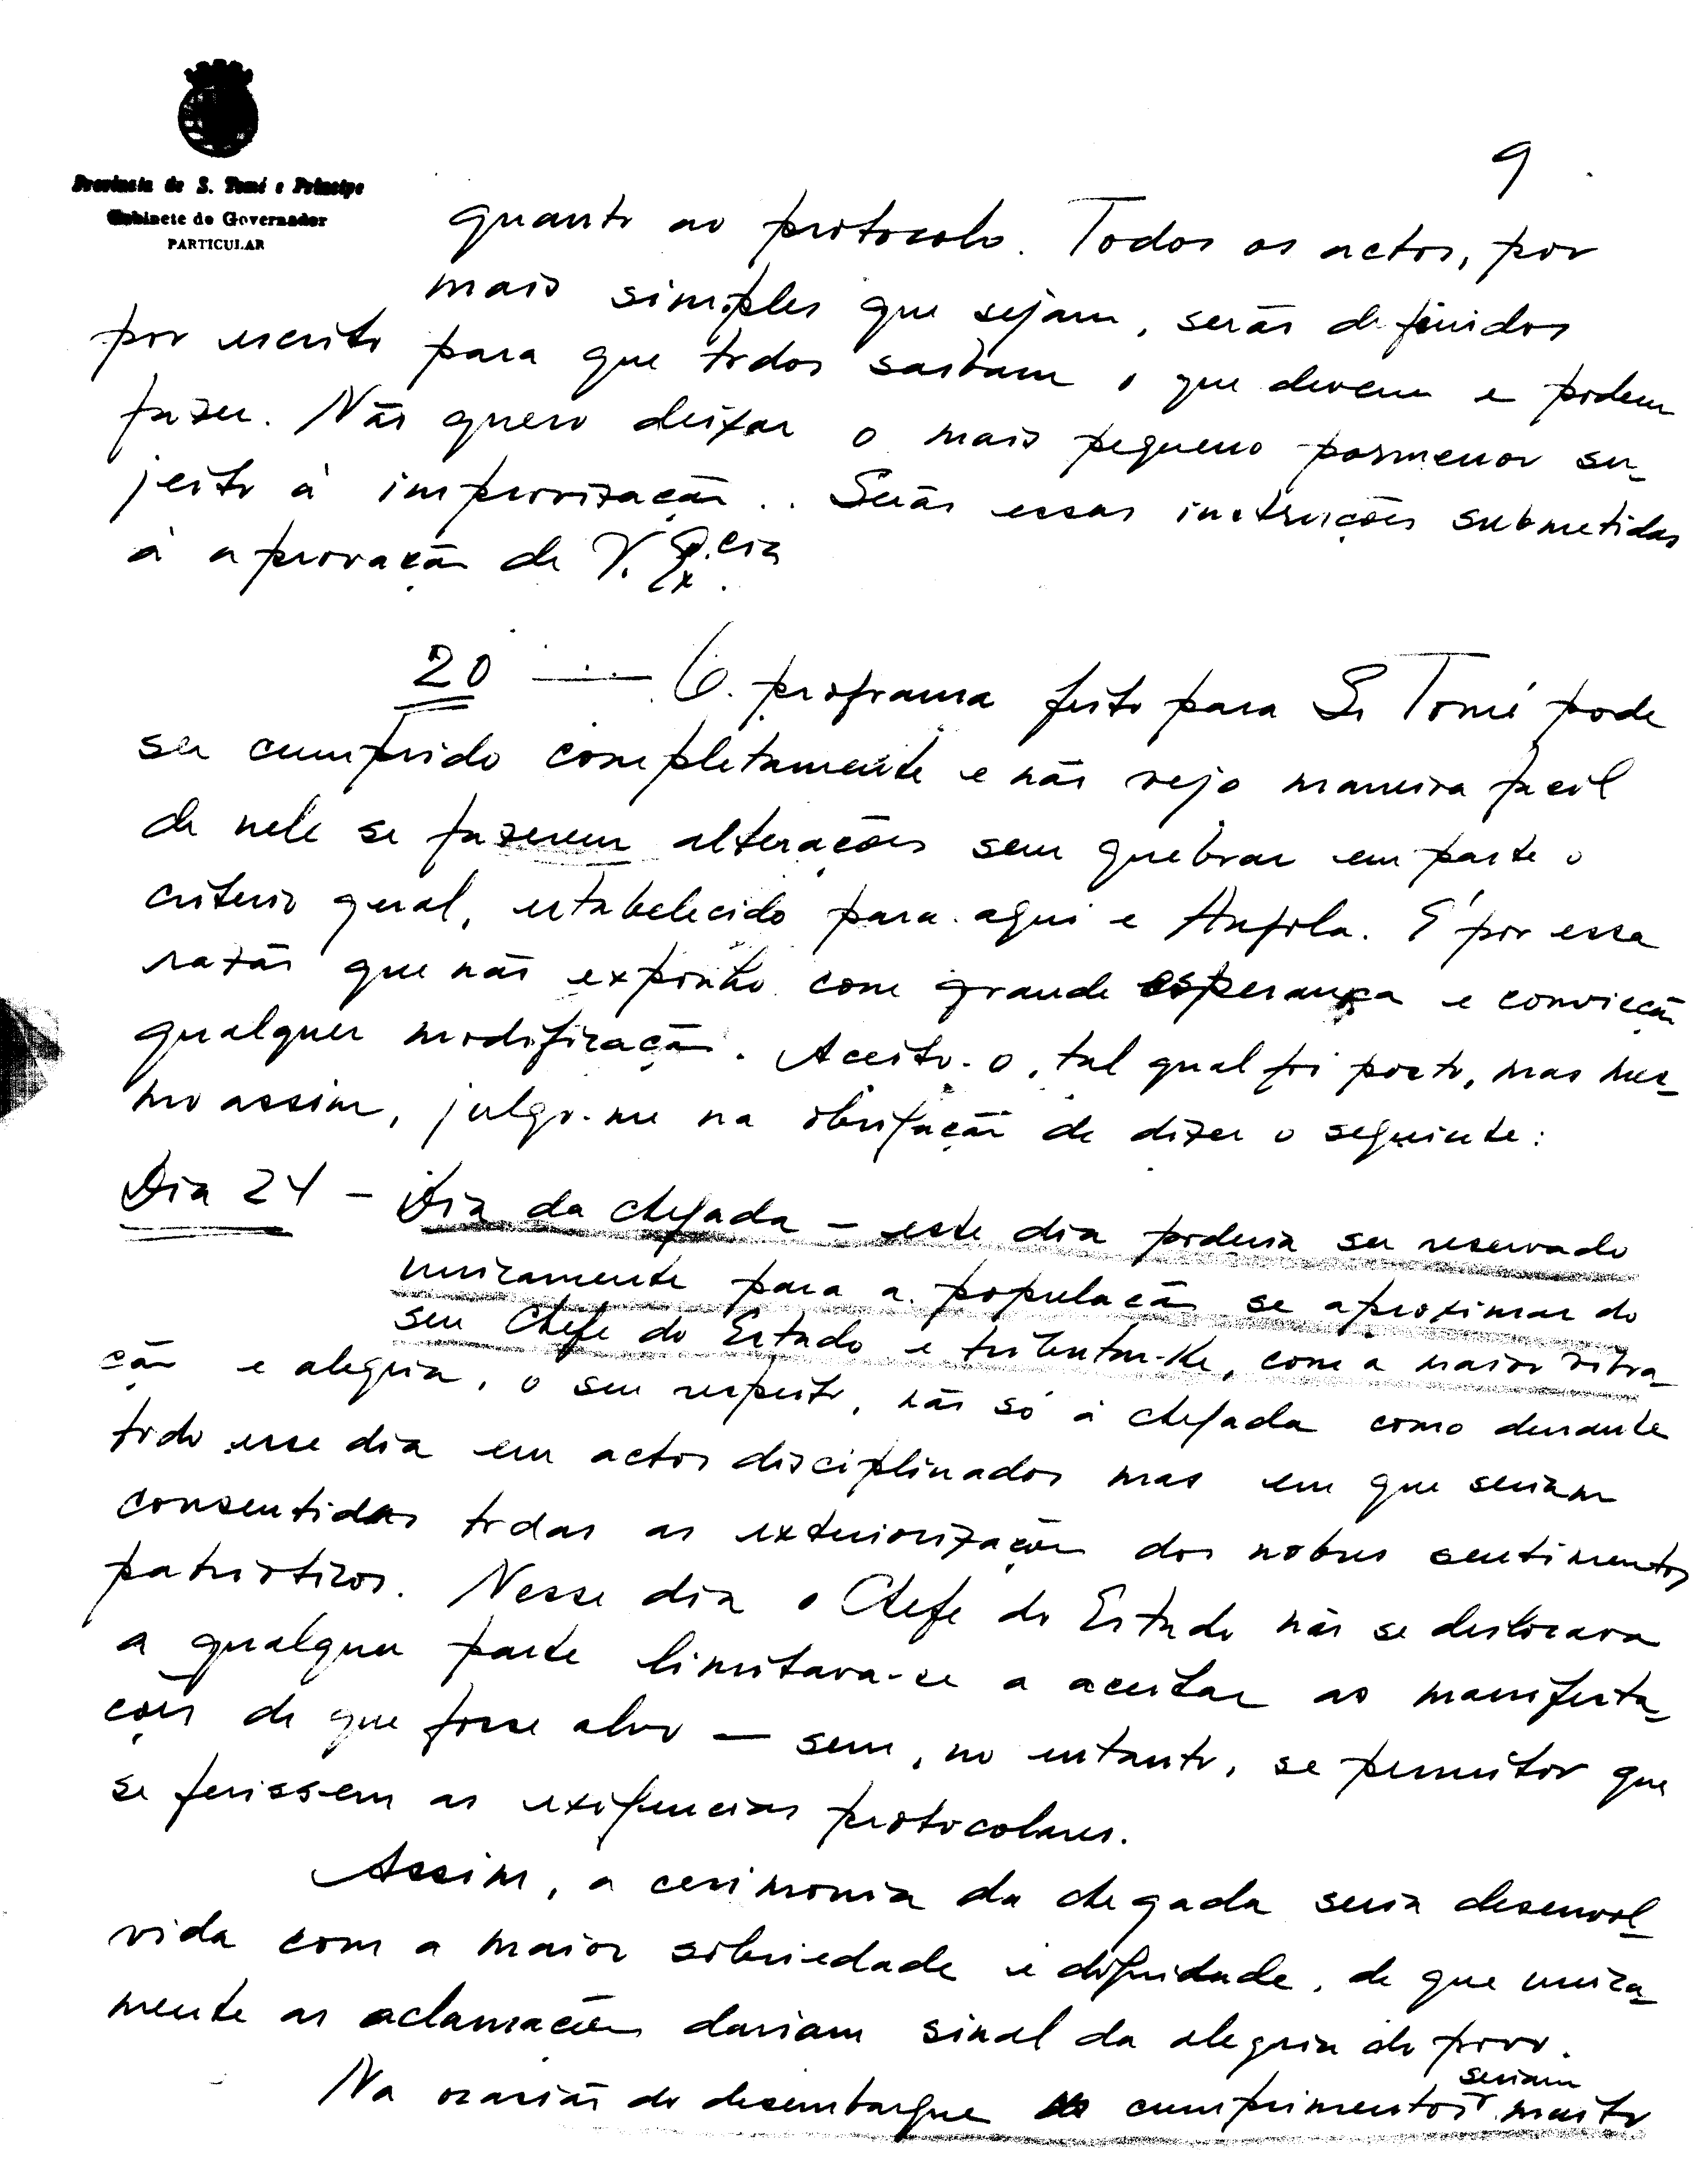 9
Provincia de S. Tomé e Principe
Gabinete do Governador
PARTICULAR
quanto ao protocolo. Todos os actos, por
mais simples que sejam, serão definidos
por escrito para que todos saibam o que devem e podem
fazer. Não quero deixar o mais pequeno pormenor su-
jeito à improvização.. Serão essas instruções submetidas
à aprovação de V. Ex.cia
20 — O programa feito para S. Tomé pode
ser cumprido completamente e não vejo maneira facil
de nele se fazerem alterações sem quebrar em parte o
criterio geral, estabelecido para aqui e Angola. É por essa
razão que não exponho com grande esperança e convicção
qualquer modificação. Aceito-o, tal qual foi posto, mas mes-
mo assim, julgo-me na obrigação de dizer o seguinte:
Dia 24 – Dia da chegada – este dia poderia ser reservado
unicamente para a população se aproximar do
seu Chefe do Estado e tributar-lhe, com a maior vibra-
ção e alegria, o seu respeito, não só à chegada como durante
todo esse dia em actos disciplinados mas em que seriam
consentidas todas as exteriorizações dos nobres sentimentos
patrioticos. Nesse dia o Chefe do Estado não se deslocava
a qualquer parte limitava-se a aceitar as manifesta-
ções de que fosse alvo — sem, no entanto, se permitir que
se ferissem as exigencias protocolares.
Assim, a cerimonia da chegada seria desenvol-
vida com a maior sobriedade e dignidade, de que unica-
mente as aclamações dariam sinal da alegria do povo.
Na ocasião do desembarque os cumprimentos seriam muito